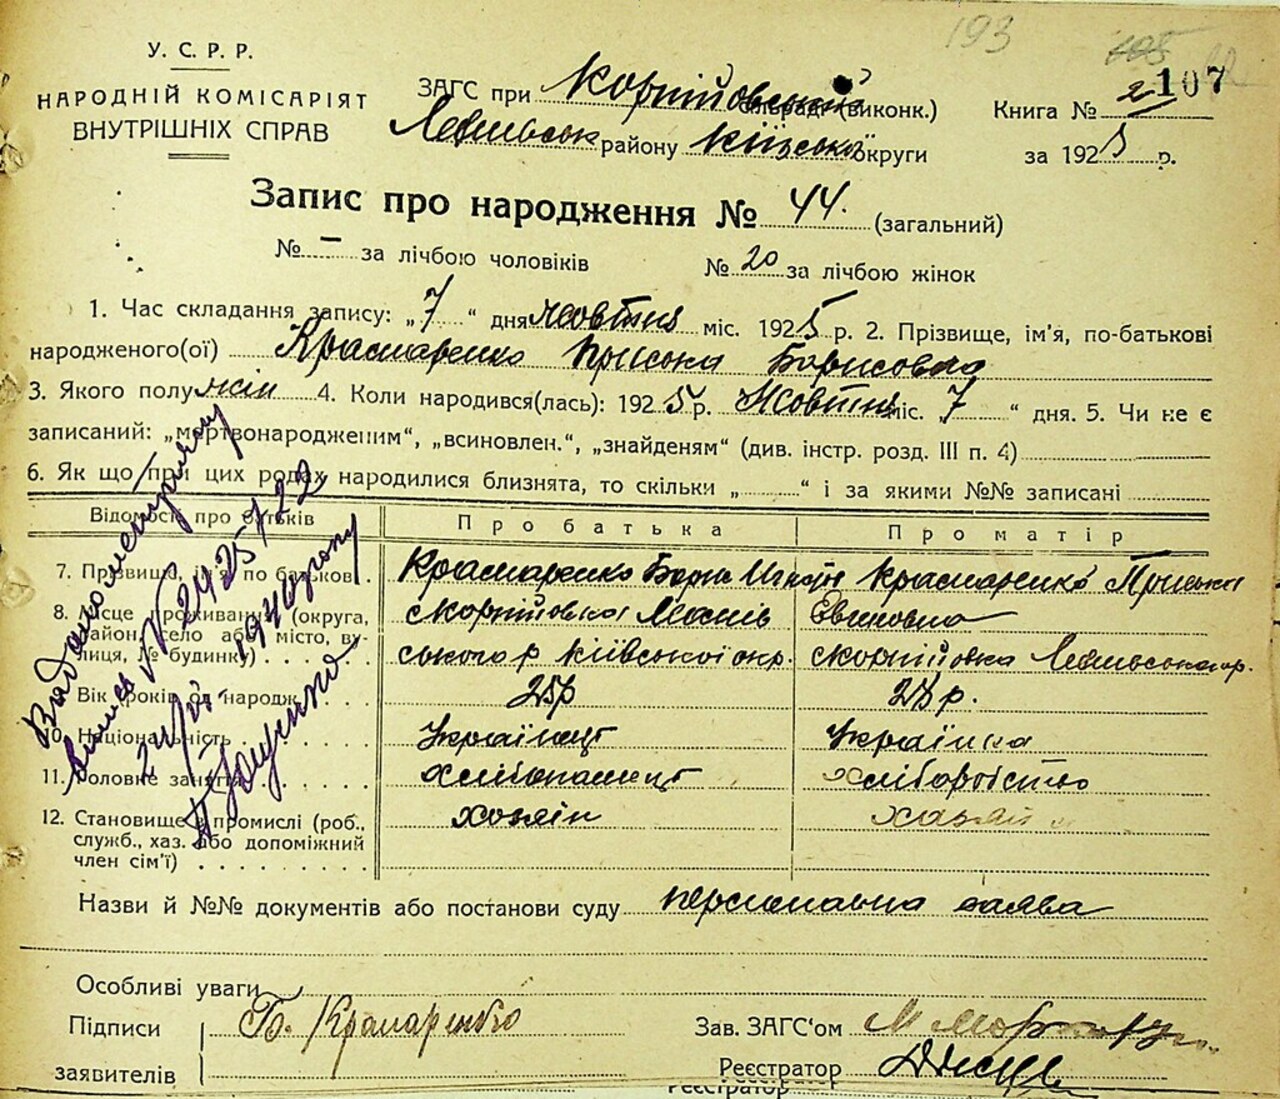 193
105
107
У. С. Р. Р.
НАРОДНІЙ КОМІСАРІЯТ
ВНУТРІШНІХ СПРАВ
ЗАГС при Корнійовській сільраді (виконк.)
району Київської округи
Книга № 2
за 1925 р.
Запис про народження № 44. (загальний)
№ – за лічбою чоловіків № 20 за лічбою жінок
1. Час складання запису: „7“ дня жовтня міс. 1925 р. 2. Прізвище, ім'я, по-батькові
народженого(ої) Крамаренко Приська Борисовна
3. Якого полу жін 4. Коли народився(лась): 1925 р. Жовтня міс. 7 “ дня. 5. Чи не є
записаний: „мертвонародженим“, „всиновлен.“, „знайденям“ (див. інстр. розд. III п. 4)
6. Як що при цих родах народилися близнята, то скільки „ “ і за якими №№ записані
Відомость про батьків Про батька Про матір
7. Прізвище, ім'я по батькові Крамаренко Борис Крамаренко Приська
8. Місце проживання (округа, район, село або місто, вулиця, № будинку) с Корнійовка
ського р Київської окр. с Корнійовка
9. Вік (років од народж.) 25 р 28 р.
10. Національність Українец Українка
11. Головне заняття хліборобство
12. Становище в промислі (роб., служб., хаз. або допоміжний член сім'ї) хозяін
Назви й №№ документів або постанови суду персональна заява
Особливі уваги
Підписи
заявителів
Б. Крамаренко
Зав. ЗАГС'ом М
Реєстратор
Реєстратор
№ 2425/22
1940 року